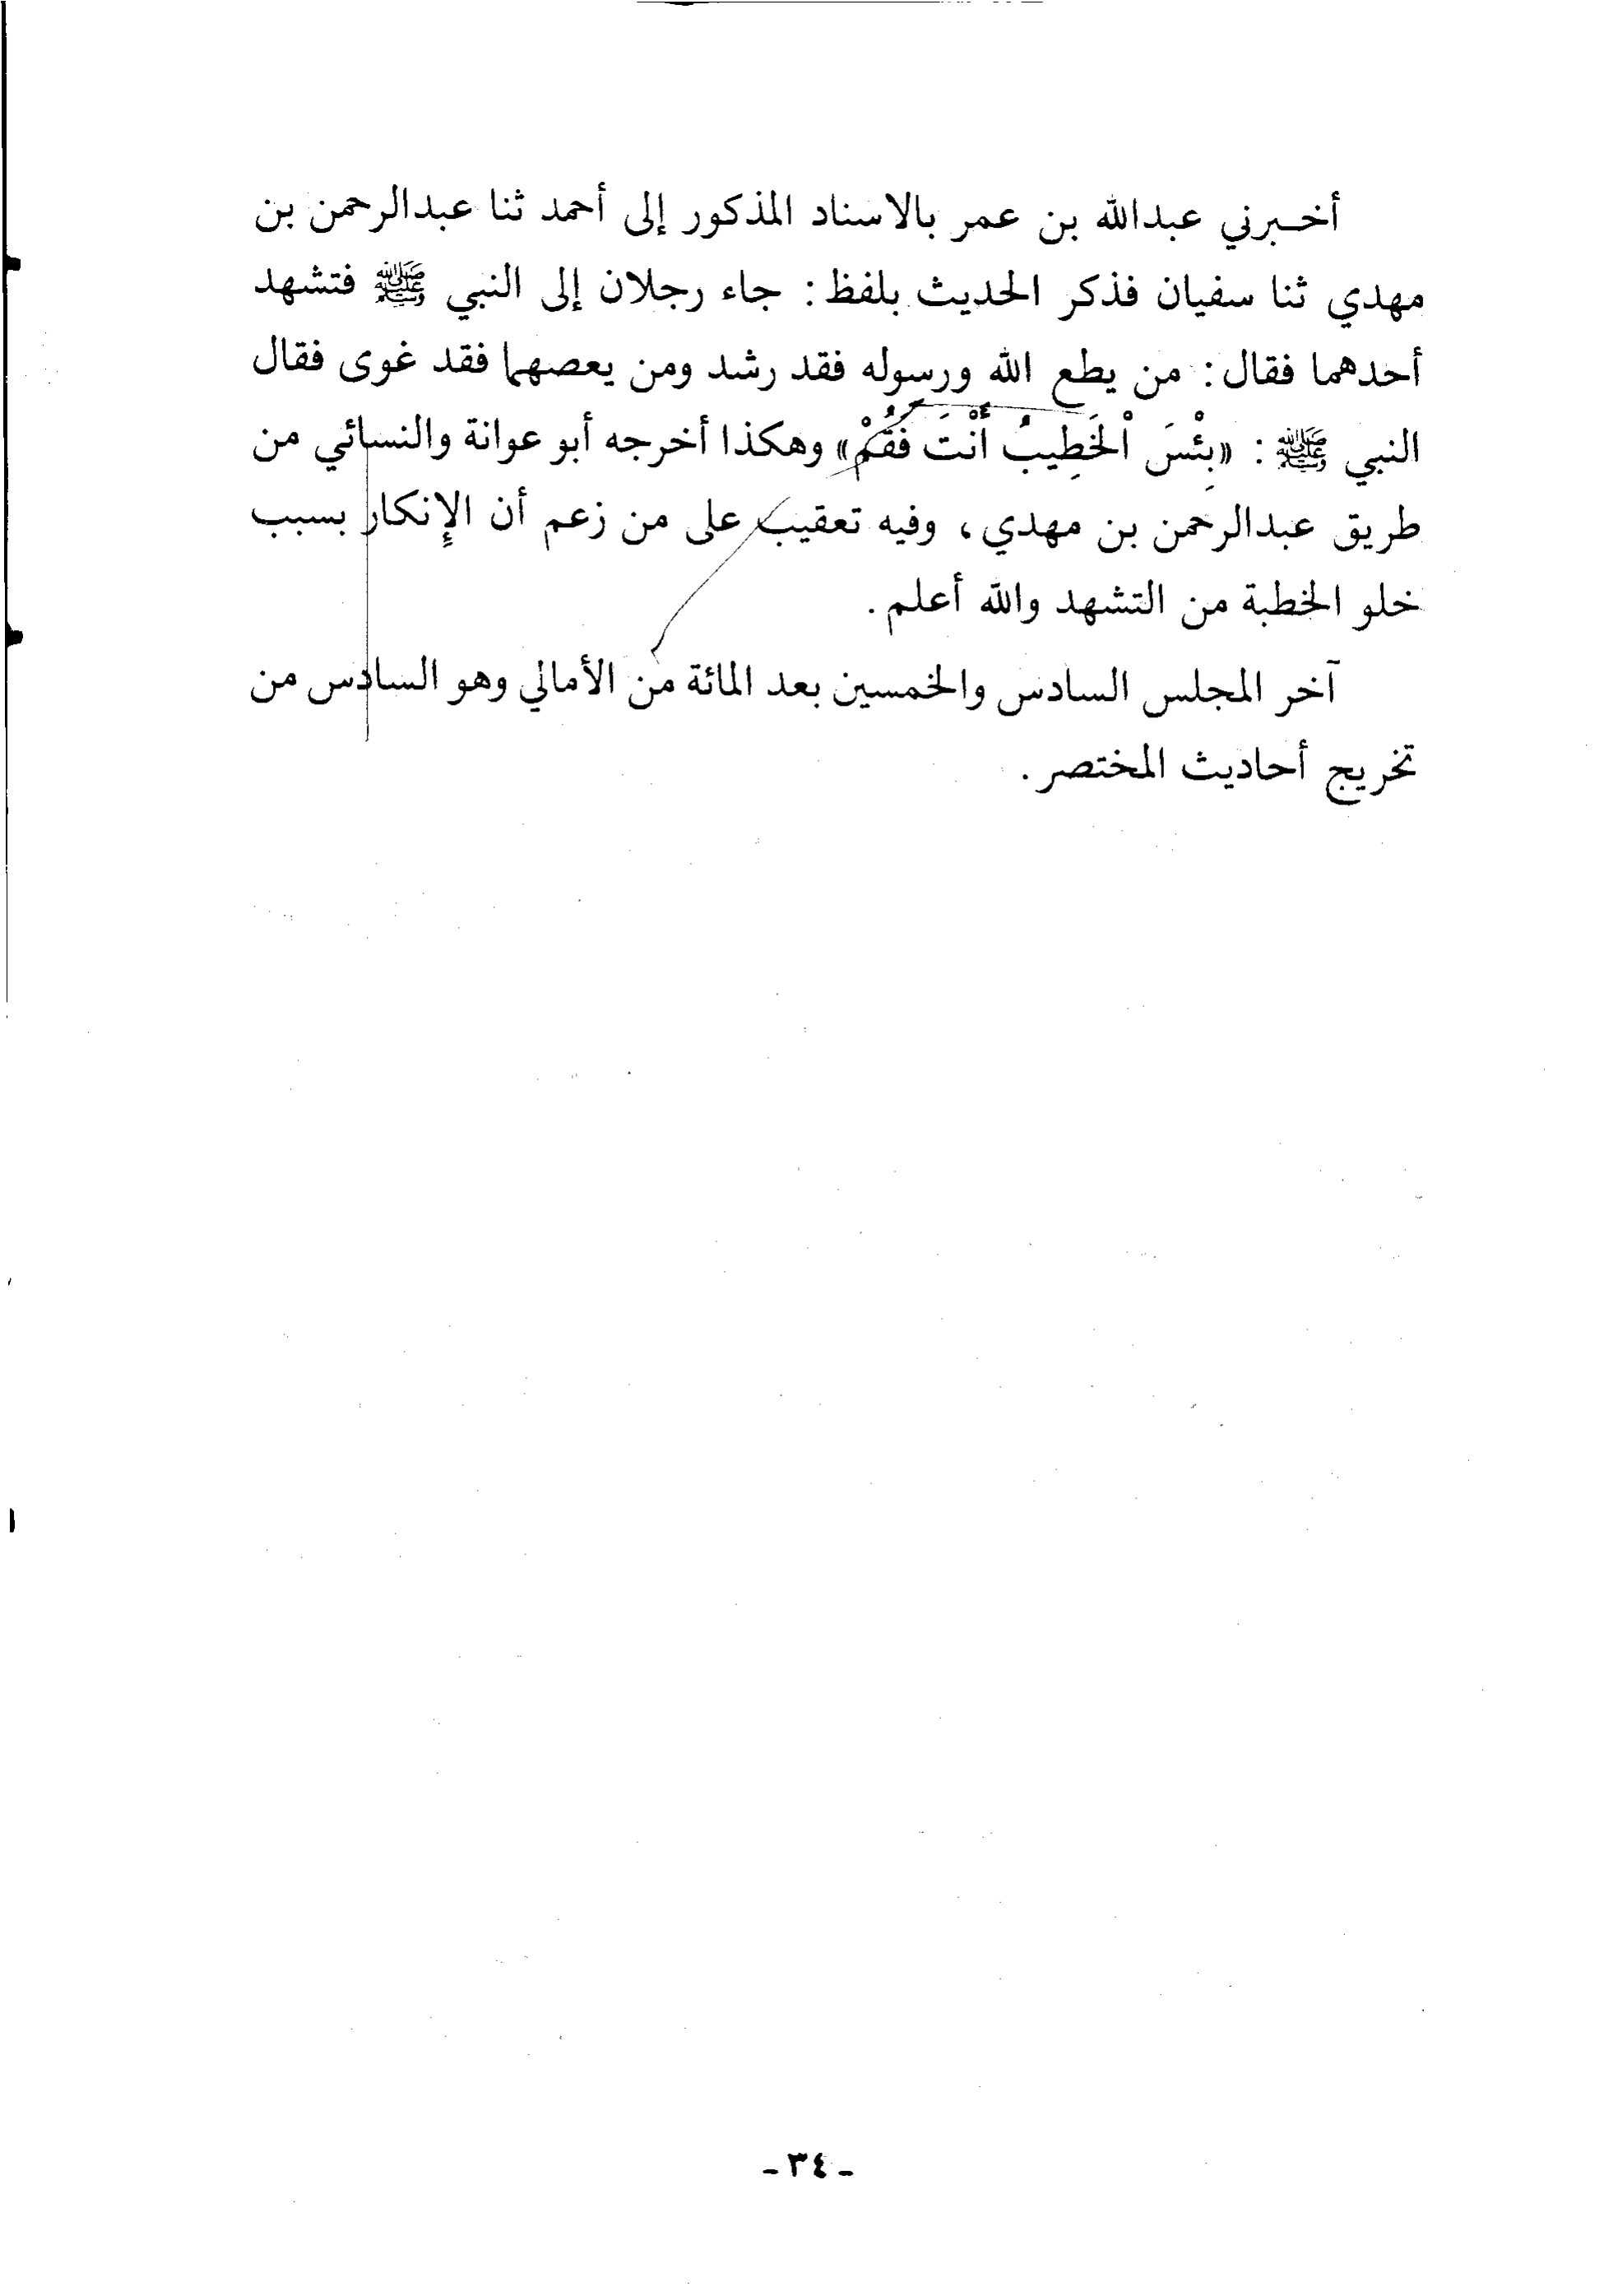 أخـبرني عبدالله بن عمر بالاسناد المذكور إلى أحمد ثنا عبدالرحمن بن
مهدي ثنا سفيان فذكر الحديث بلفظ: جاء رجلان إلى النبي ﷺ فتشهد
أحدهما فقال: من يطع الله ورسوله فقد رشد ومن يعصهما فقد غوى فقال
النبي ﷺ: «بِئْسَ اْلخَطِيبُ أَنْتَ فَقُمْ» وهكذا أخرجه أبو عوانة والنسائي من
طريق عبدالرحمن بن مهدي، وفيه تعقيب على من زعم أن الإنكار بسبب
خلو الخطبة من التشهد والله أعلم.
آخر المجلس السادس والخمسين بعد المائة من الأمالي وهو السادس من
تخريج أحاديث المختصر.
- ٣٤ -